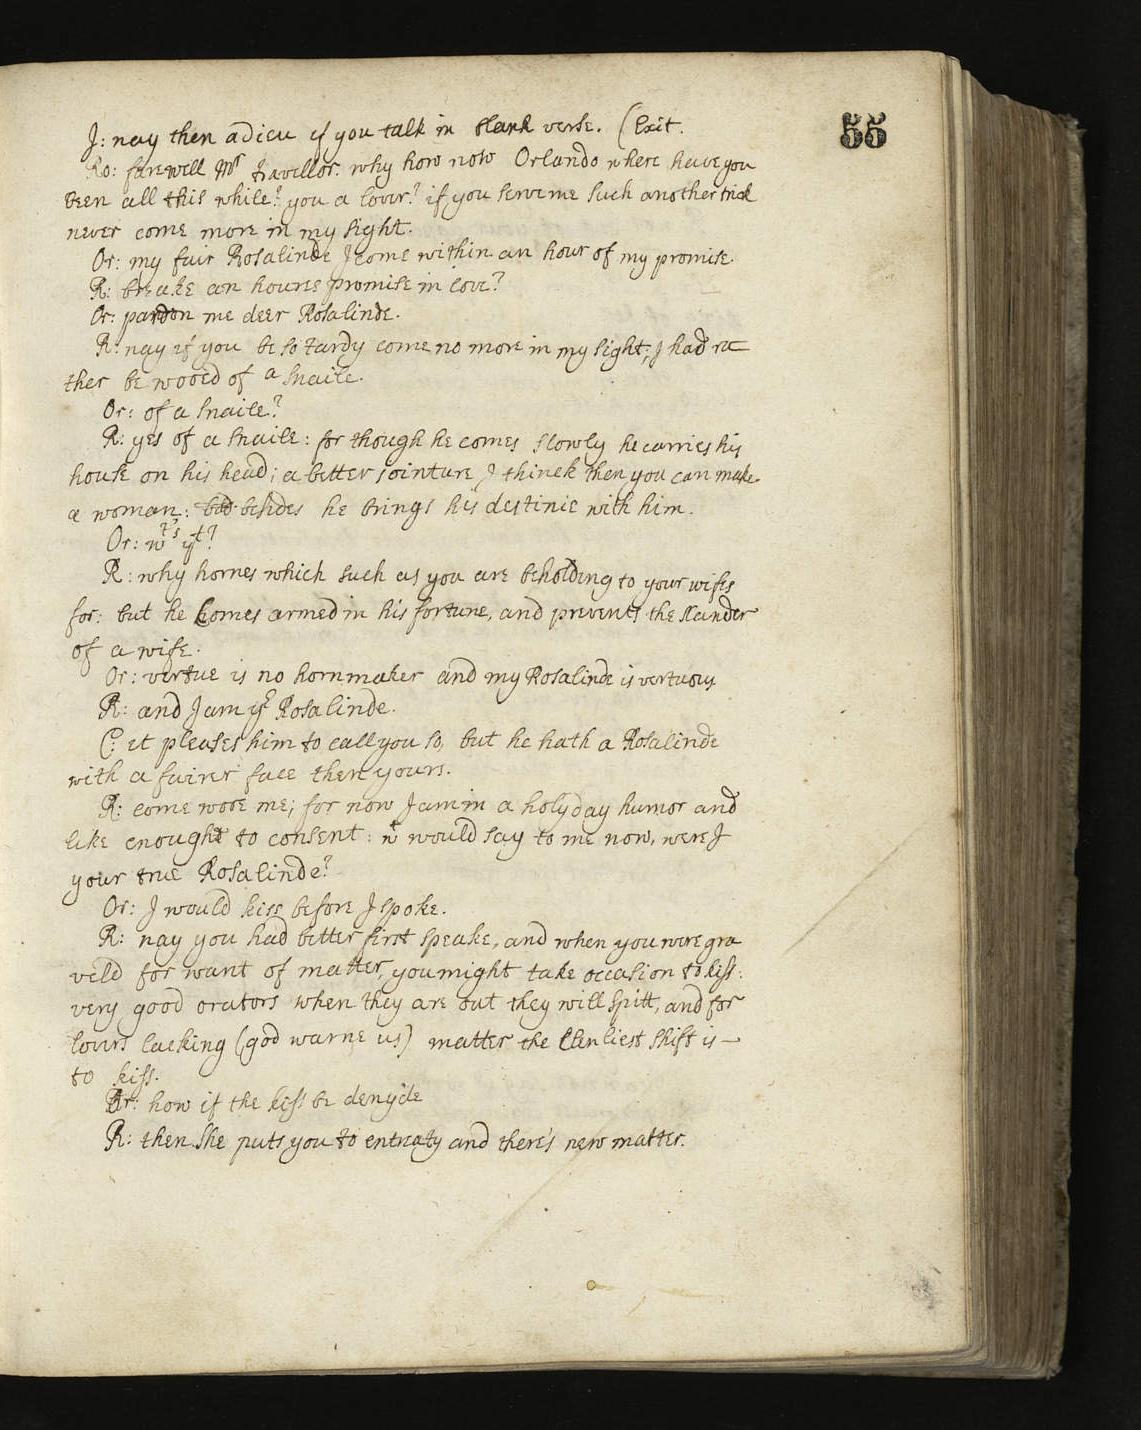 55
J: nay then adieu if you talk in blank verse. (Exit.
Ro: farewell Mr travellor. why how now Orlando where have you
been all this while? you a lover? if you serve me such another trick
never come more in my sight.
Or: my fair Rosalinde I come within an hour of my promise.
R: breake an houres promise in love?
Or: pardon me deer Rosalinde.
R: nay if you be so tardy come no more in my sight; I had ra
ther be wooed of a snaile.
Or: of a snaile?
R: yes of a snaile: for though he comes slowly he carries his
house on his head; a better jointure I thinck then you can make
a woman: besides he brings his destinie with him.
Or: wts yt?
R: why hornes which such as you are beholding to your wifes
for: but he comes armed in his fortune, and prevents the slander
of a wife.
Or: vertue is no hornmaker and my Rosalinde is vertuous
R: and I am yr Rosalinde.
C: it pleases him to call you so, but he hath a Rosalinde
with a fairer face then yours.
R: come wooe me; for now I am in a holyday humor and
like enought to consent: wt would say to me now, were I
your true Rosalinde?
Or: I would kiss before I spoke.
R: nay you had better first speake, and when you were gra
veld for want of matter, you might take occasion to kiss:
very good orators when they are out they will spitt, and for
lovers lacking (god warne us) matter the clenliest shift is —
to kiss.
Or: how if the kiss be denyde
R: then she puts you to entreaty and there's new matter.